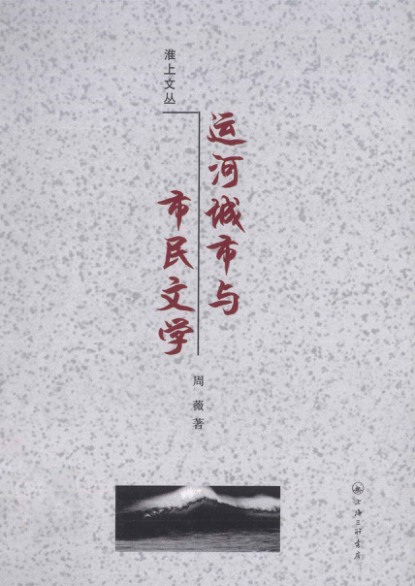 淮上文丛
运河城市与
市民文学
周薇著
上海三联书店